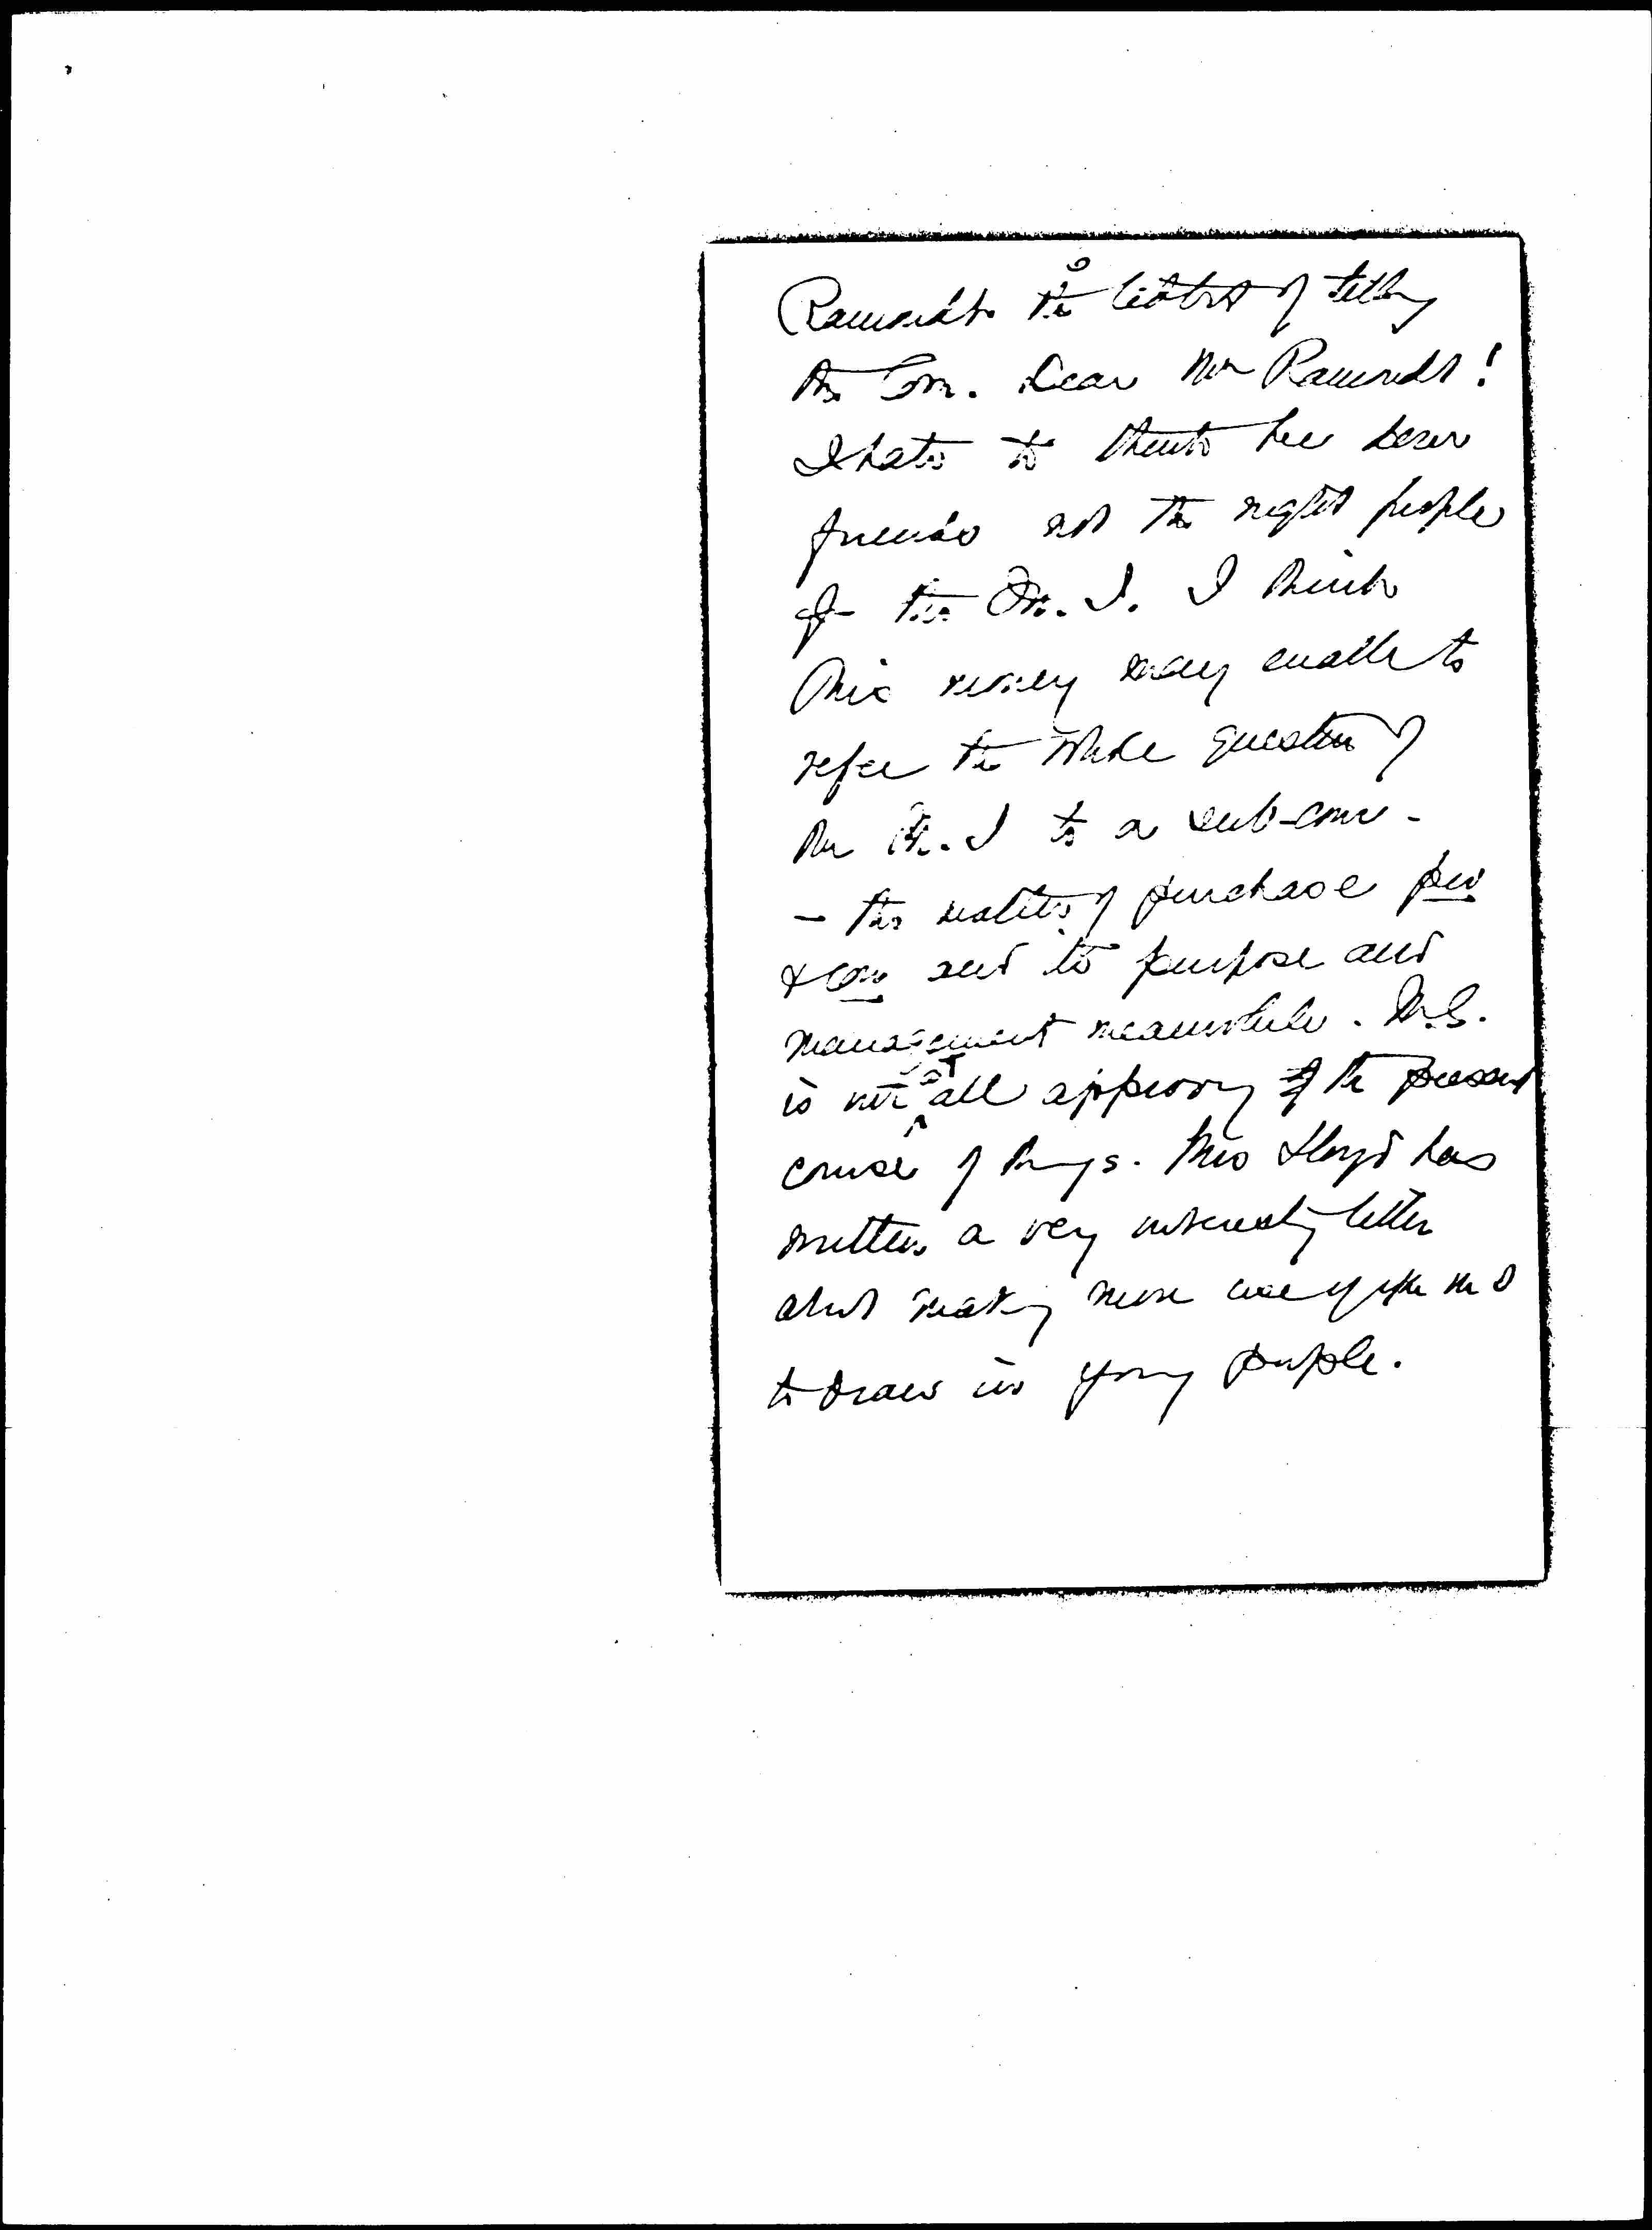 the of telling
the Com. Dear Mr Rawnsley!
I hate to think her dear
friends not the right people
for the I. I think
this money may enable to
refer the whole question of
the I to a sub-com-
- the matter of purchase pro
& con and its purpose and
management meanwhile. M.S.
is not at all approving of the present
course of things. Miss Lloyd has
written a very interesting letter
about making more use of the
to draw in young people.